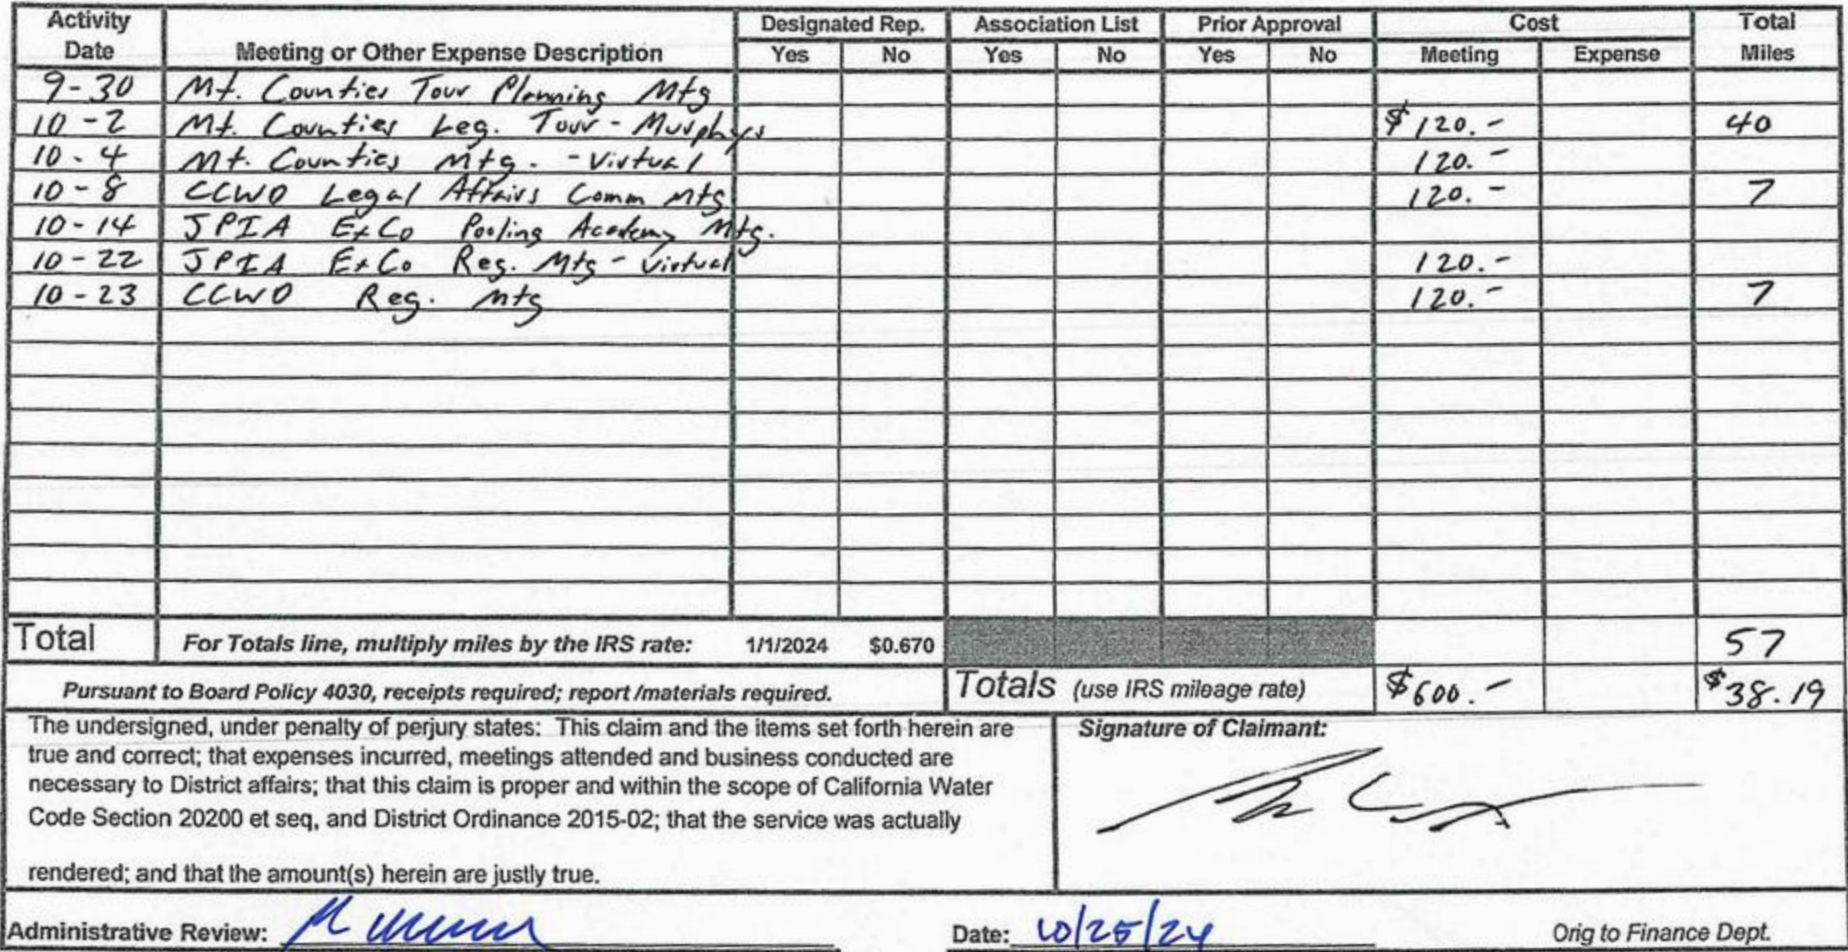 Activity Date Meeting or Other Expense Description Designated Rep. Yes No Association List Yes No Prior Approval Yes No Cost Meeting Expense Total Miles
9-30 Mt. Counties Tour Planning Mtg
10-2 Mt. Counties Leg. Tour - Murphys $120.- 40
10-4 Mt. Counties Mtg. - Virtual 120.-
10-8 CCWD Legal Affairs Comm Mtg 120.- 7
10-14 JPIA ExCo Pooling Academy Mtg.
10-22 JPIA ExCo Reg. Mtg - Virtual 120.-
10-23 CCWD Reg. Mtg 120.- 7
Total For Totals line, multiply miles by the IRS rate: 1/1/2024 $0.670 57
Pursuant to Board Policy 4030, receipts required; report /materials required. Totals (use IRS mileage rate) $600.- $38.19
The undersigned, under penalty of perjury states: This claim and the items set forth herein are
true and correct; that expenses incurred, meetings attended and business conducted are
necessary to District affairs; that this claim is proper and within the scope of California Water
Code Section 20200 et seq, and District Ordinance 2015-02; that the service was actually
rendered; and that the amount(s) herein are justly true.
Signature of Claimant:
Administrative Review: Date: 10/25/24 Orig to Finance Dept.